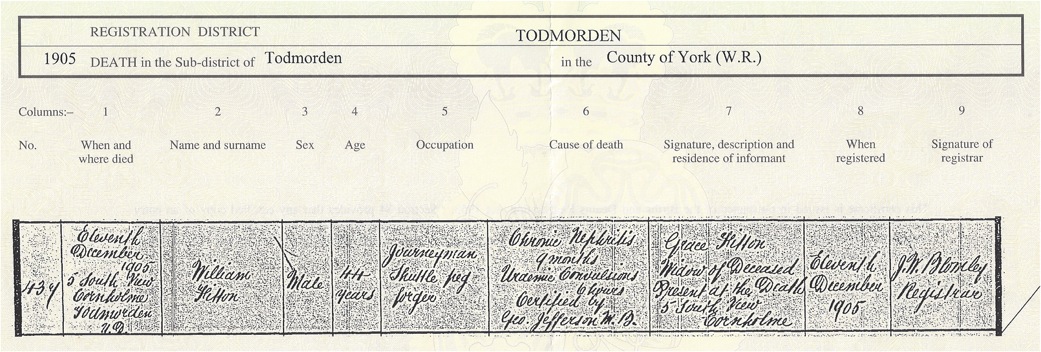 REGISTRATION DISTRICT TODMORDEN
1905 DEATH in the Sub-district of Todmorden in the County of York (W.R.)
Columns:– 1 2 3 4 5 6 7 8 9
No. When and where died Name and surname Sex Age Occupation Cause of death Signature, description and residence of informant When registered Signature of registrar
Eleventh
December
1905
5 South View
Cornholme
Todmorden
U.D.
William
Male
44
years
Journeyman
Shuttle peg
forger
Chronic Nephritis
9 months
Uraemic Convulsions
6 hours
Certified by
Geo. Jefferson M.B.
Grace
Widow of Deceased
Present at the Death
5 South View
Cornholme
Eleventh
December
1905
Registrar